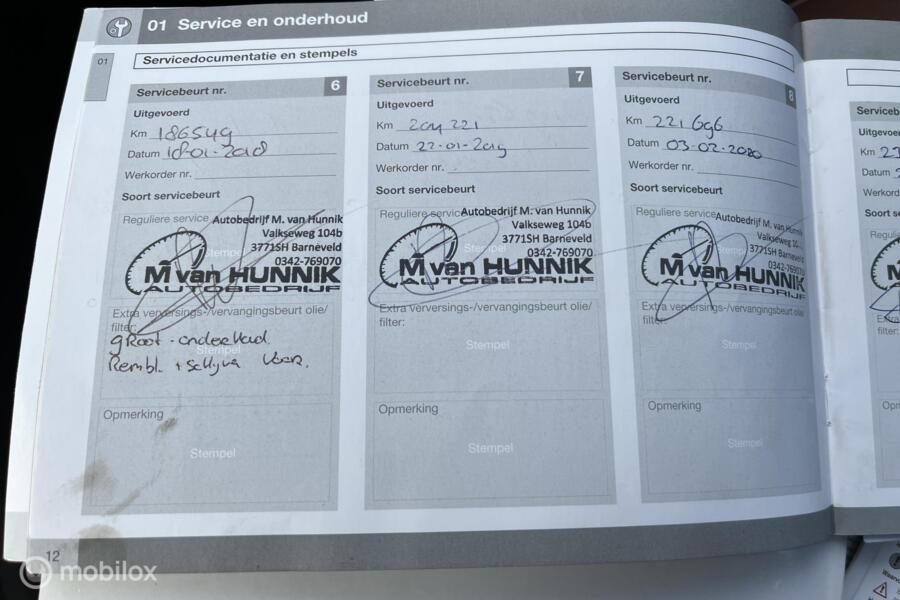 01 Service en onderhoud
01
Servicedocumentatie en stempels
Servicebeurt nr. 6
Uitgevoerd
Km 186549
Datum 18-01-2018
Werkorder nr.
Soort servicebeurt
Reguliere service
Autobedrijf M. van Hunnik
Valkseweg 104b
3771SH Barneveld
0342-769070
Stempel
M van HUNNIK
AUTOBEDRIJF
Extra verversings-/vervangingsbeurt olie/
filter:
groot-onderhoud
Stempel
Rembl. + schijva voor.
Opmerking
Stempel
Servicebeurt nr. 7
Uitgevoerd
Km 204221
Datum 22-01-2019
Werkorder nr.
Soort servicebeurt
Reguliere service
Autobedrijf M. van Hunnik
Valkseweg 104b
3771SH Barneveld
0342-769070
Stempel
M van HUNNIK
AUTOBEDRIJF
Extra verversings-/vervangingsbeurt olie/
filter:
Stempel
Opmerking
Stempel
Servicebeurt nr. 8
Uitgevoerd
Km 221696
Datum 03-02-2020
Werkorder nr.
Soort servicebeurt
Reguliere service
Autobedrijf M. van Hunnik
Valkseweg 10
3771SH Barneveld
0342-769070
M van HUNNIK
AUTOBEDRIJF
Extra verversings-/vervangingsbeurt olie/
filter:
Stempel
Opmerking
Stempel
Serviceb
Uitgevoer
Km 23
Datum
Werkord
Soort se
Regulie
Extra
filter:
Op
12
mobilox